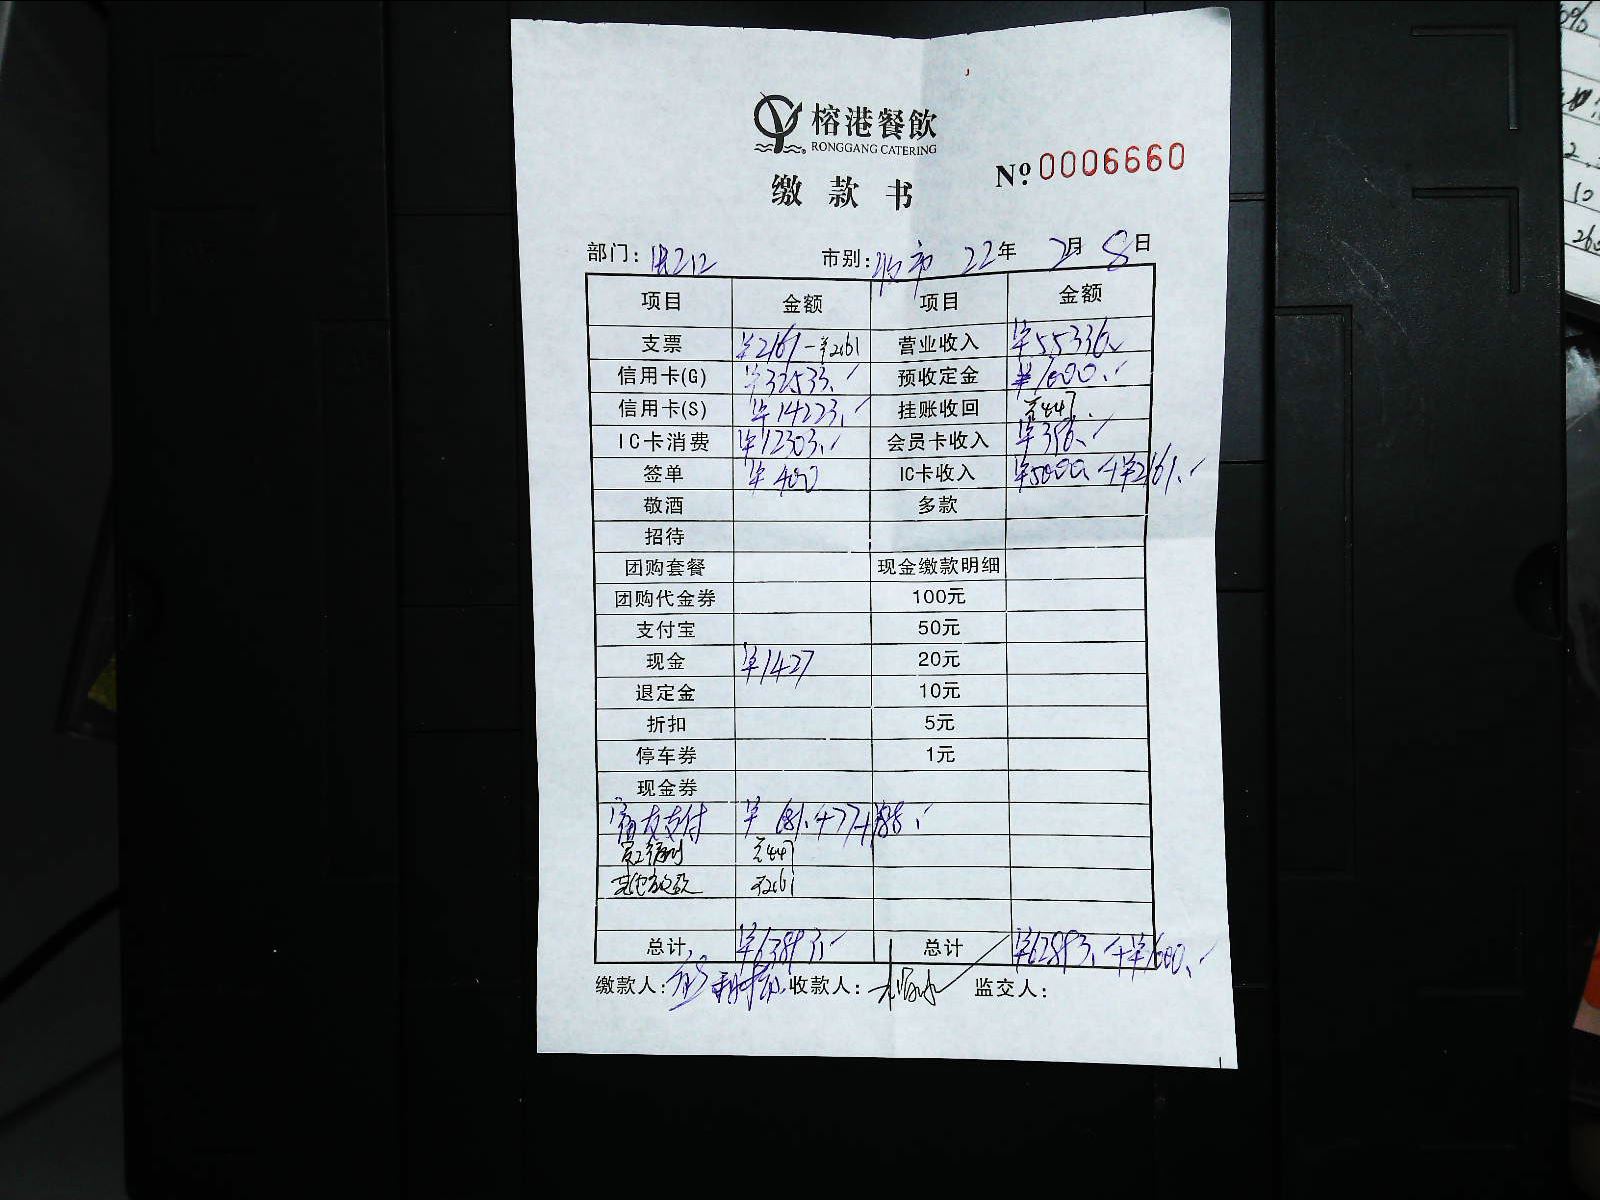 榕港餐飲
RONGGANG CATERING
缴款书
Nº 0006660
部门: 市别: 市 22年 2月 8日
项目 金额 项目 金额
支票 ¥2161-¥2061 营业收入 ¥55336
信用卡(G) ¥32533. 预收定金 ¥1600.
信用卡(S) ¥14223. 挂账收回 447.
IC卡消费 ¥12303. 会员卡收入 ¥396.
签单 ¥400 IC卡收入 ¥5000.+¥2161.
敬酒 多款
招待
团购套餐 现金缴款明细
团购代金券 100元
支付宝 50元
现金 ¥1427 20元
退定金 10元
折扣 5元
停车券 1元
现金券
支付 ¥
447
2061
总计 总计 ¥62893.+¥1600.
缴款人: 收款人: 监交人: